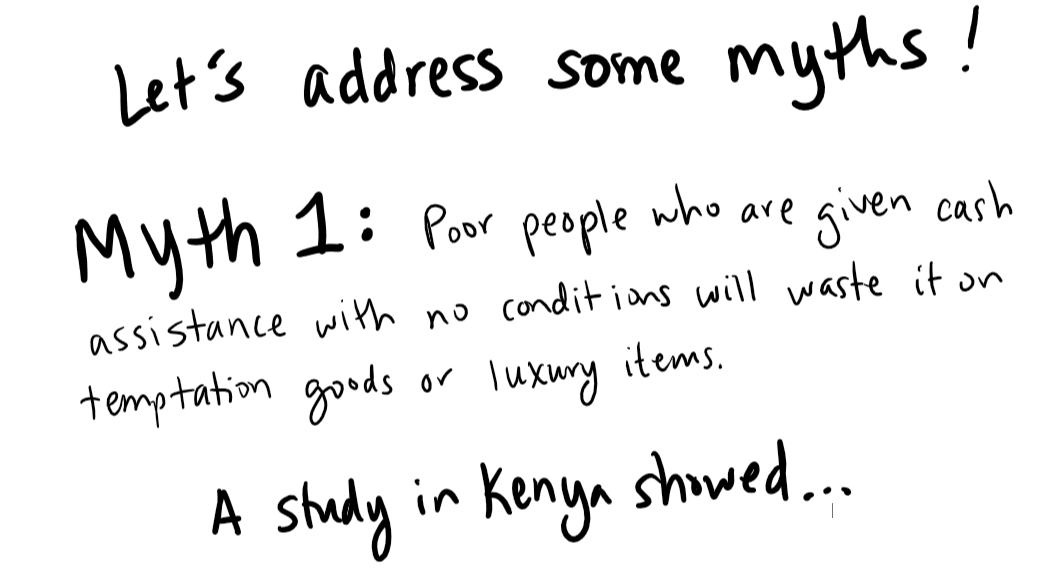 Let's address some myths!
Myth 1: Poor people who are given cash
assistance with no conditions will waste it on
temptation goods or luxury items.
A study in Kenya showed...